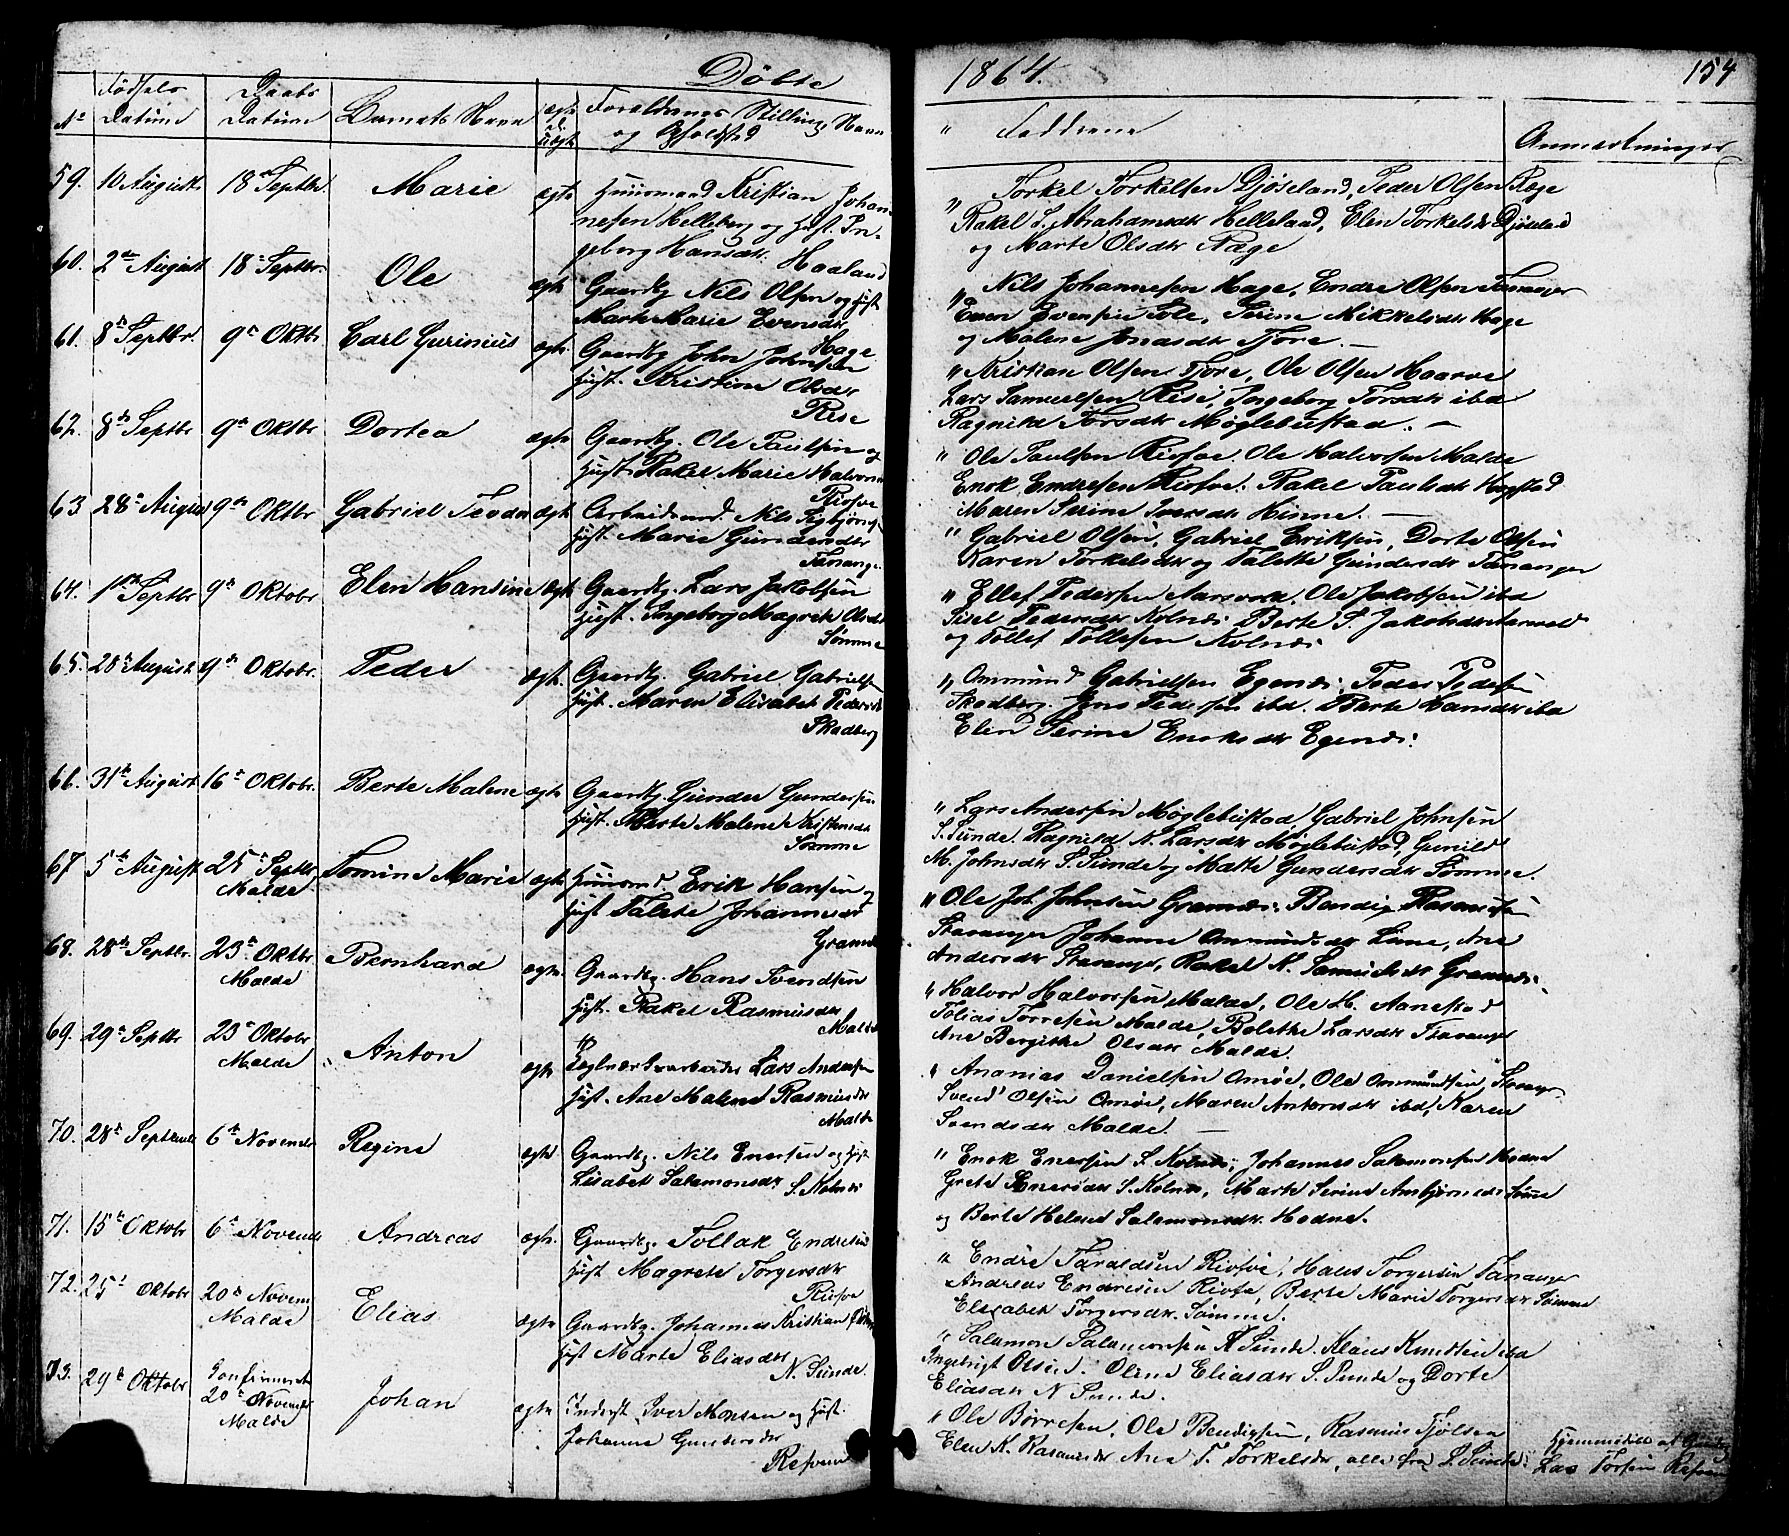 Döbte
1864.
154
No
Fødsels Datum
Daabs Datum
Barnets Navn
ægte el. uægte
Forældrenes Stilling, Navn og Opholdsted
Faddrene
Anmærkninger
59. 10 August 18de Septbr. Marie ægte Huusmand Kristian Johan-
nesen Helleberg og Hust. In-
geborg Hansdtr. Haaland
" Torkel Torkelsen Djöseland, Peder Olsen Ræge
Rakel S. Abrahamsdtr Helleland, Elen Torkelsdtr Djöseland
og Marte Olsdtr Ræge
60. 2den August 18de Septbr. Ole ægte Gaardbr Nils Olsen og Hust
Marte Marie Evensdtr
Hage
" Nils Johannesen Hage, Endre Olsen Tananger
Even Evensen Sole, Serine Mikkelsdtr Hage
og Malene Jonasdtr Tjore. —
61. 8de Septbr. 9de Oktbr Carl Gurinius ægte Gaardbr John Johnsen
Hust. Kristine Olsdtr
Rise
" Kristian Olsen Tjore, Ole Olsen Haarve
Lars Samuelsen Risei, Ingeborg Torsdtr ibd
Ragnild Torsdtr Möglebustad. —
62. 8de Septbr 9de Oktbr Dortea ægte Gaardbr. Ole Paulsen og
Hust. Rakel Marie Halvorsd
Risfoe
" Ole Paulsen Risfoe. Ole Halvorsen Malde
Enok Endresen Risfoe. Rakel Paulsdtr Hogstad
Maren Serine Iversdtr Hinne. —
63 28de August 9de Oktbr Gabriel Teodor ægte Arbeidsmd. Nils Sigbjörns
Hust. Marie Gundersdtr
Tananger
" Gabriel Olsen, Gabriel Eriksen, Dorte Olsen
Karen Torkelsdtr og Talette Gundersdtr Tananger
64. 1ste Septbr 9de Oktobr Elen Hansine ægte Gaardbr. Lars Jakobsen
Hust. Ingeborg Magrete Olsdtr
Sömme
" Ellef Pedersen Aarsvold, Ole Jakobsen ibd
Sisel Pedersdtr Kolnæs Berte S. Jakobsdtr Aarsvold
og Tollef Tollefsen Kolnæs
65. 28de August 9de Oktobr. Peder ægte Gaardbr. Gabriel Gabrielsen
Hust. Maren Elisabet Pedersdtr
Skadberg
" Ommund Gabrielsen Egenæs, Peder Pedersen
Skadberg. Jens Pedersen ibd. Berte Hansdtr ibd
Elen Serine Enoksdtr Egenæs.
66. 31te August 16de Oktobr. Berte Malene ægte Gaardbr. Gunder Gundersen
Hust. Marte Malene Kristensdtr
Sömme
" Lars Andersen Möglebustad Gabriel Johnsen
S. Sunde. Ragnild K. Larsdtr Möglebustad, Gunild
M. Johnsdtr S. Sunde og Malte Gundersdtr Sömme.
67 5te August 25de Septbr Malde Tomine Marie ægte Huusmd. Erik Hansen og
Hust Talete Johannesdtr
Grannæs
" Ole Joh Johnsen Grannæs. Bendig Rasmussen
Stavanger Johanne Ommundsdtr Lime, Ane
Andersdtr Stavanger, Rakel K. Samuelsdtr Grannæs.
68. 28de Septbr. 23de Oktbr. Malde Bernhard ægte Gaardbr. Hans Svendsen
Hust. Rakel Rasmusdtr
Malde
" Halvor Halvorsen Malde, Ole H. Aanestad
Tobias Torresen Malde, Bolethe Larsdtr Stavanger
Ane Bergithe Olsdtr Malde.
69. 29de Septbr 23de Oktobr Malde Anton ægte Teglværksarbeider Lars Andersen
Hust. Ane Malene Rasmusdtr
Malde
" Ananias Danielsen Omöe, Ole Ommundsen, Stavanger
Svend Olsen Omöe, Maren Antonsdtr ibd, Karen
Svendsdtr Malde. —
70. 28de Septembr 6te Novembr Regine ægte Gaardbr. Nils Enersen og Hust
Lisabet Salamonsdtr
S. Kolnæs
" Enok Enersen S. Kolnæs, Johannes Salamonsen Hodne
Grete Enersdtr S. Kolnes, Marte Serine Asbjörnsdtr Sömme
og Berte Helene Salamonsdtr Hodne.
71. 15de Oktobr 6te Novembr Andreas ægte Gaardbr. Tollak Endresen
Hust Magrete Torgersdtr
Risfoe
" Endre Taraldsen Risfoe, Hans Torgersen Tananger
Andreas Endresen Risfoe, Berte Marie Torgersdtr Sömme
Elisabet Torgersdtr. Sömme.
72. 25de Oktobr 20de Novem Malde Elias ægte Gaardbr. Johannes Kristian
Hust Marte Eliasdtr
N. Sunde.
" Salamon Salamonsen N Sunde. Klaus Knudsen ibd
Ingebrigt Olsen. Oline Eliasdtr S. Sunde og Dorte
Eliasdtr N Sunde.
73. 29de Oktobr Konfirmeret 20de Novembr Malde Johan ægte Inderst Iver Monsen og Hust.
Johanne Gundersdtr
Refsnes
" Ole Börresen, Ole Bendigsen, Rasmus Tjölsen
Elen K. Rasmusdtr Ane T. Torkelsdtr, alle fra S. Sunde.
Hjemmedöbt af Gaardbr
Lars Torsen Refsnes